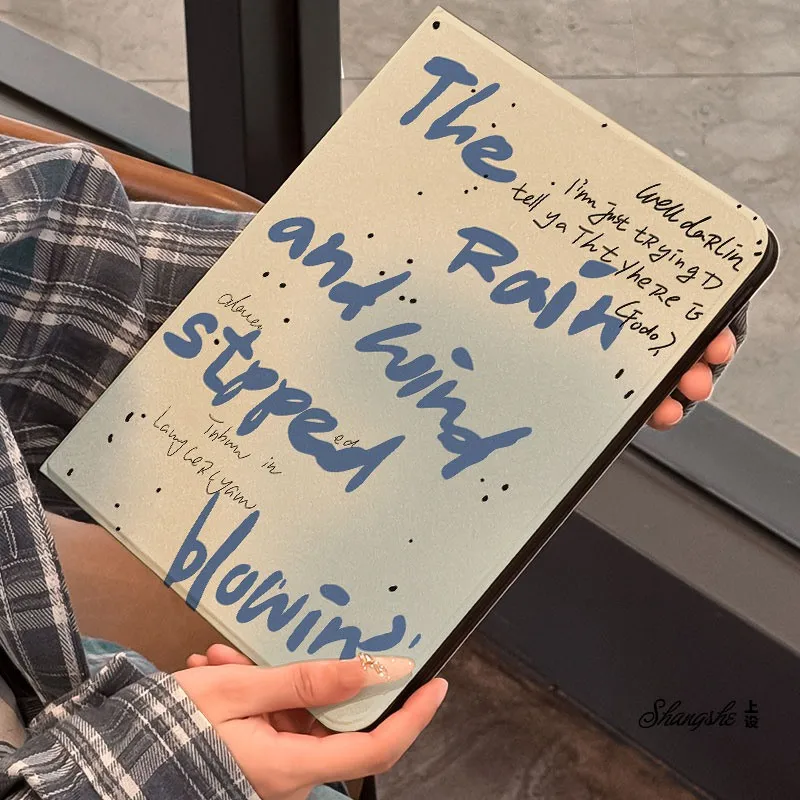 The
Rain
and wind
stpped
blowin'
Well darlin
I'm just tRying T
tell ya Tht yheRe is
(Fodo),
ed
in
Shangshe 上设